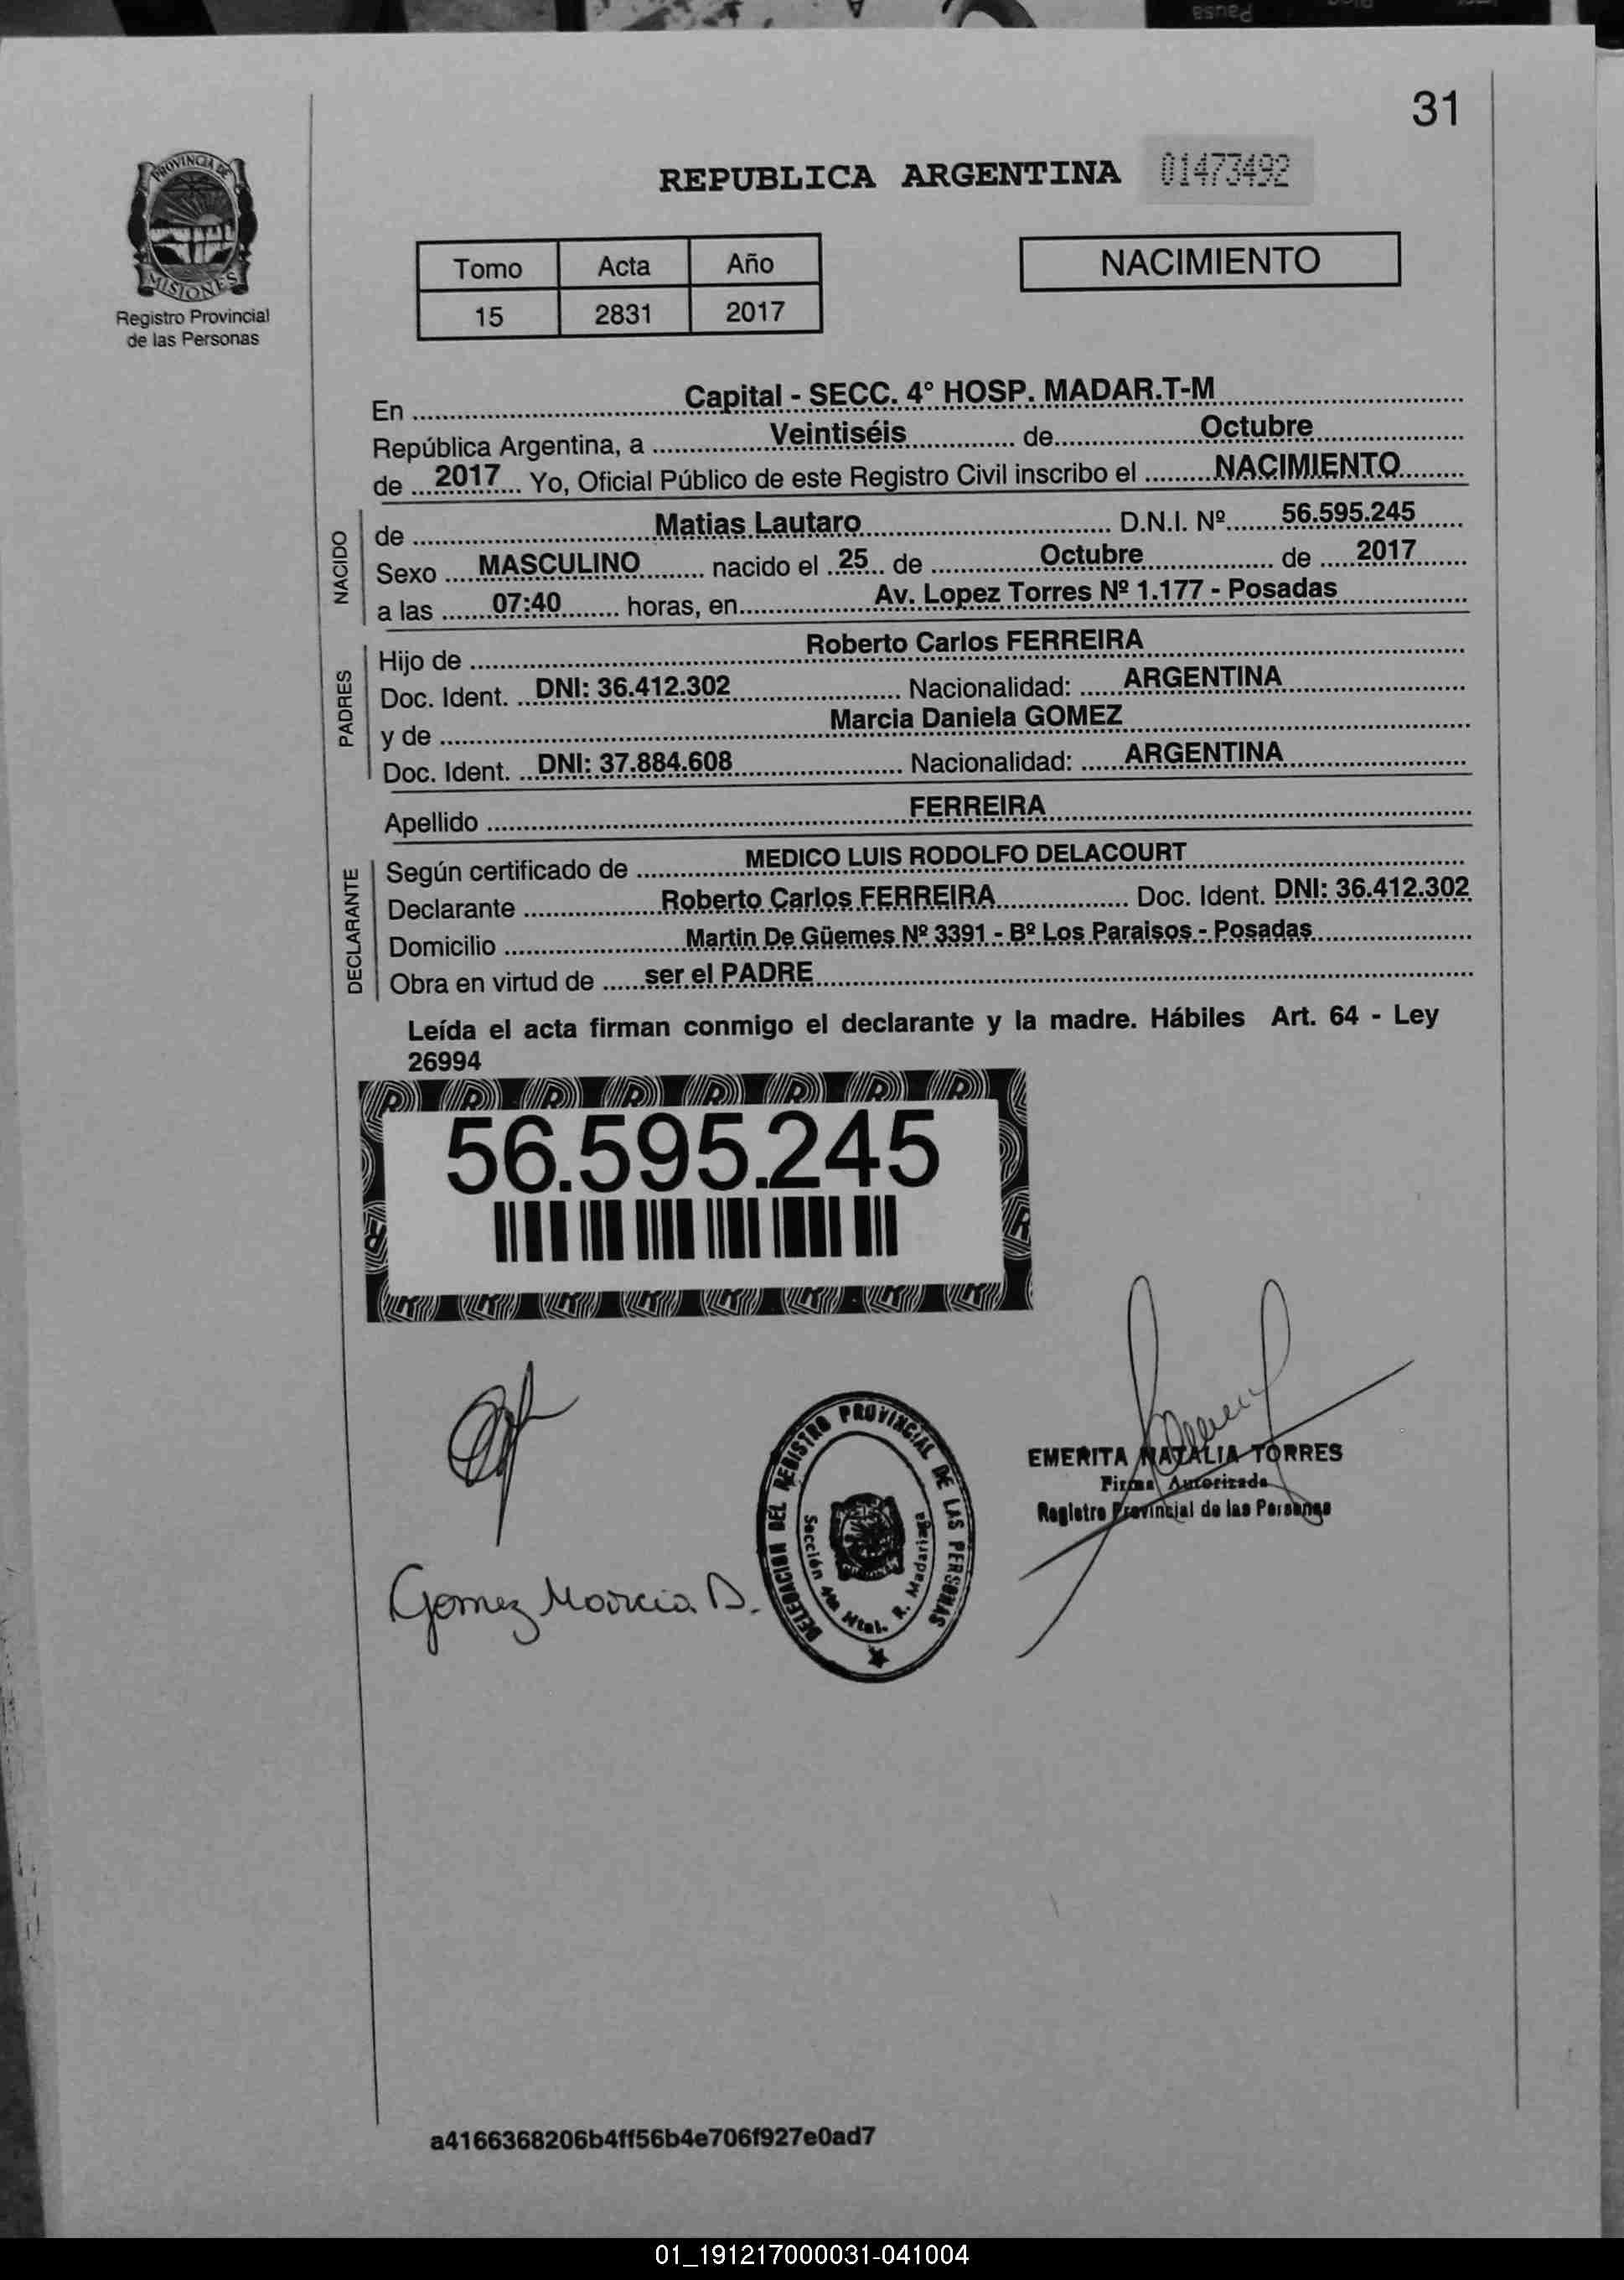 Pausa
31
PROVINCIA DE
MISIONES
Registro Provincial
de las Personas
REPUBLICA ARGENTINA 01473492
Tomo Acta Año
15 2831 2017
NACIMIENTO
En Capital - SECC. 4° HOSP. MADAR.T-M
República Argentina, a Veintiséis de Octubre
de 2017 Yo, Oficial Público de este Registro Civil inscribo el NACIMIENTO
NACIDO
de Matias Lautaro D.N.I. Nº 56.595.245
Sexo MASCULINO nacido el 25 de Octubre de 2017
a las 07:40 horas, en Av. Lopez Torres Nº 1.177 - Posadas
PADRES
Hijo de Roberto Carlos FERREIRA
Doc. Ident. DNI: 36.412.302 Nacionalidad: ARGENTINA
y de Marcia Daniela GOMEZ
Doc. Ident. DNI: 37.884.608 Nacionalidad: ARGENTINA
Apellido FERREIRA
DECLARANTE
Según certificado de MEDICO LUIS RODOLFO DELACOURT
Declarante Roberto Carlos FERREIRA Doc. Ident. DNI: 36.412.302
Domicilio Martin De Güemes Nº 3391 - Bº Los Paraisos - Posadas
Obra en virtud de ser el PADRE
Leída el acta firman conmigo el declarante y la madre. Hábiles Art. 64 - Ley
26994
56.595.245
Gomez Marcia D.
DELEGACION DEL REGISTRO PROVINCIAL DE LAS PERSONAS
Sección 4ta Htal. R. Madariaga
EMERITA NATALIA TORRES
Firma Autorizada
Registro Provincial de las Personas
a4166368206b4ff56b4e706f927e0ad7
01_191217000031-041004